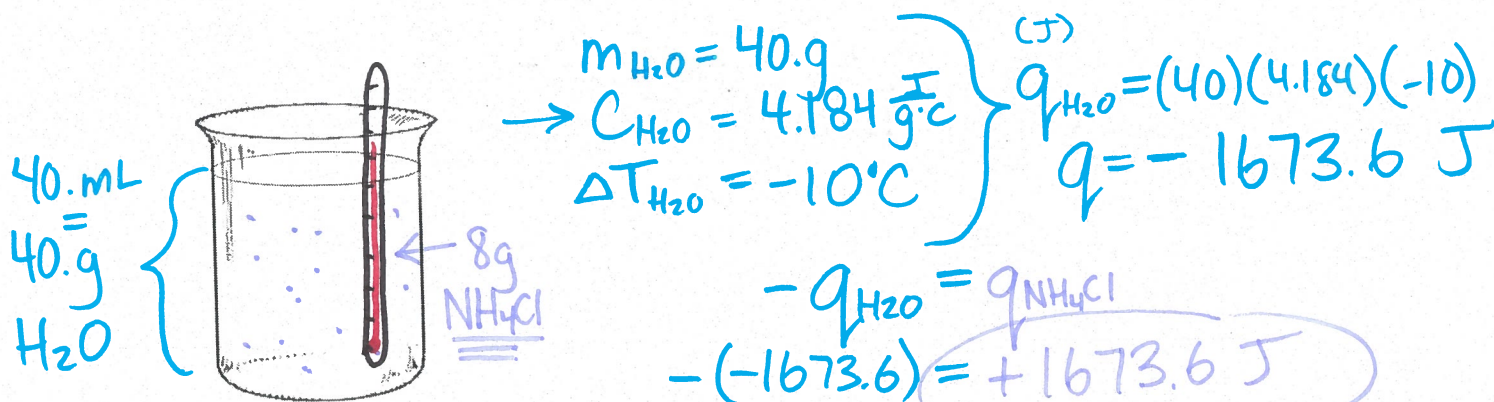 40.mL
=
40.g
H₂O
8g
NH₄Cl
m H₂O = 40.g
C H₂O = 4.184 J/g·°C
ΔT H₂O = -10°C
(J)
q H₂O = (40)(4.184)(-10)
q = - 1673.6 J
-q H₂O = q NH₄Cl
-(-1673.6) = +1673.6 J